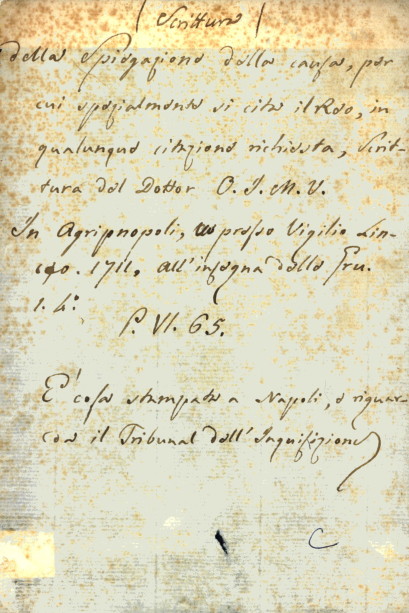 (Scrittura)
della Spiegazione della causa, per
cui spezialmente si cita il Reo, in
qualunque citazione richiesta, Scrit-
tura del Dottor O. I. M. V.
In Agripnopoli, presso Vigilio Lin-
ceo. 1711, all'insegna della Gru.
1. 4.º
P. VI. 65.
E' cosa stampata a Napoli, e riguar-
da il Tribunal dell'Inquisizione)
C